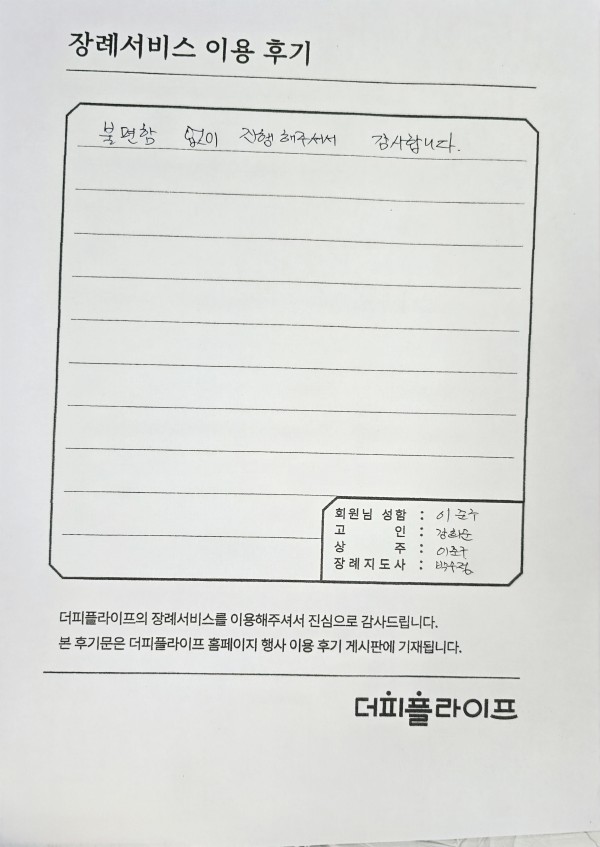 장례서비스 이용 후기
불편함 없이 진행해주셔서 감사합니다.
회원님 성함 : 이준구
고 인 : 강희순
상 주 : 이준구
장례지도사 :
더피플라이프의 장례서비스를 이용해주셔서 진심으로 감사드립니다.
본 후기문은 더피플라이프 홈페이지 행사 이용 후기 게시판에 기재됩니다.
더피플라이프